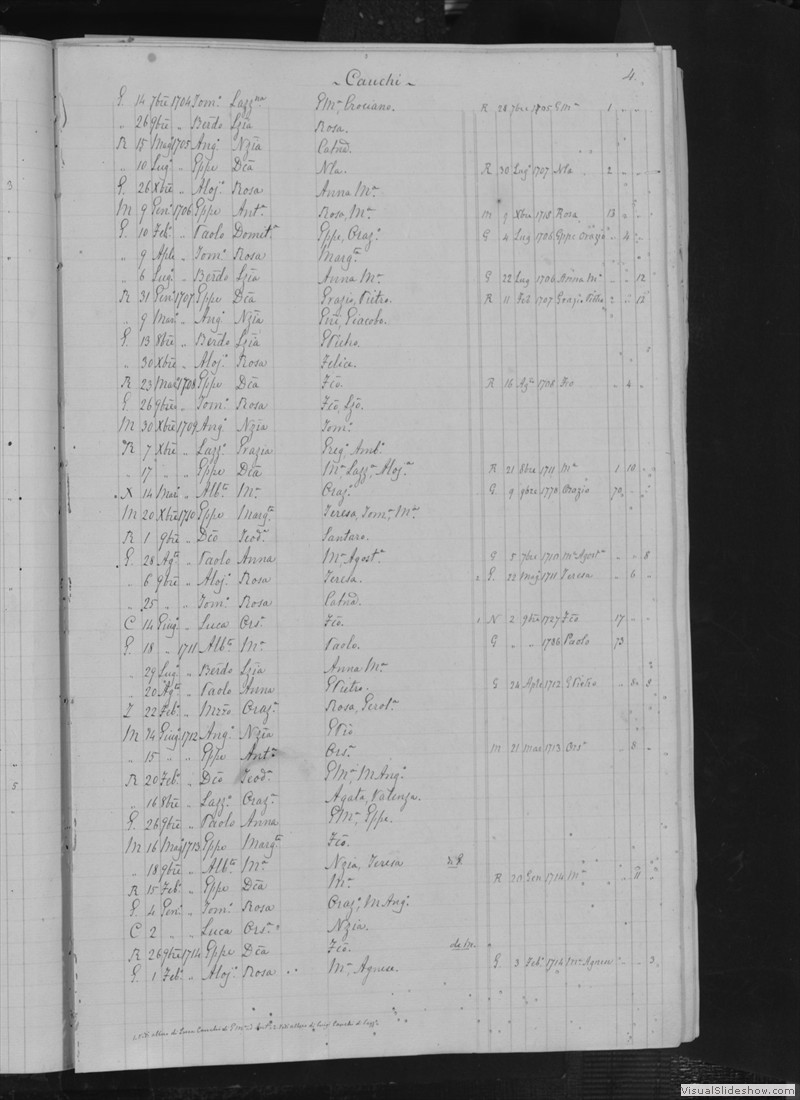 3
5
4.
Cauchi
G. 14 7bre 1704 Tom.o Lazz.na GM.a Grociano. R 28 7bre 1705 GM.a 1 " "
" 26 9bre " Berdo Lzia Rosa.
R 15 Mag 1705 Ang.o Nzia Catnd.
" 10 Lug.o " Gppe Dca Nla. R 30 Lug.o 1707 Nla 2 " "
G. 26 Xbre " Aloj.o Rosa Anna M.a
M 9 Gen.o 1706 Gppe Ant.a Rosa, M.a M 9 Xbre 1718 Rosa 13 " "
G. 10 Feb.o " Paolo Domit.a Gppe, Oraz.o G 4 Lug 1706 Gppe Orazio " 4 "
" 9 Aple " Tom.o Rosa Marg.ta
" 6 Lug.o " Berdo Lzia Anna M.a G 22 Lug 1706 Anna M.a " " 12
R 31 Gen.o 1707 Gppe Dca Grazio, Pietro. R 11 Feb 1707 Grazio Pietro " " 12
" 9 Mar.o " Ang.o Nzia Giacobo.
G. 13 8bre " Berdo Lzia
" 30 Xbre " Aloj.o Rosa Felice.
R 23 Mar 1708 Gppe Dca Fco. R 16 Ag.o 1708 Fco " 4 "
G. 26 9bre " Tom.o Rosa Fco, Lzo.
M 30 Xbre 1709 Ang.o Nzia Tom.o
R 7 Xbre " Lazz.o Grazia Greg.o Amb.o
" 17 " " Gppe Dca M.a Lazz.a Aloj.a R 21 8bre 1711 M.a 1 10 "
X 14 Mar.o " Alb.to M.a Oraz.o G 9 9bre 1770 Orazio 70
M 20 Xbre 1710 Gppe Marg.ta Teresa, Tom.a M.a
R 1 9bre " Dco Teod.a Santaro.
G. 28 Ag.o " Paolo Anna M.a Agost.a G 5 7bre 1710 M.a Agost.a " " 8
" 6 9bre " Aloj.o Rosa Teresa. 2 G. 22 Mag 1711 Teresa " 6 "
" 25 " " Tom.o Rosa Catnd.
C 14 Giug.o " Luca Ors.a Fco. 1 N 2 9bre 1727 Fco 17 "
G. 18 " 1711 Alb.to M.a Paolo. G " " 1786 Paolo 73
" 29 Lug.o " Berdo Lzia Anna M.a
" 20 Ag.o " Paolo Anna GPietro. G 24 Aple 1712 GPietro " 8 8
Z 22 Feb.o " Mzzo Oraz.a Rosa, Gerol.a
M 24 Giug.o 1712 Ang.o Nzia
" 15 " " Gppe Ant.a Ors.a M 21 Mar 1713 Ors.a " 8 "
R 20 Feb.o " Dco Teod.a GM.a M Ang.o
" 16 8bre " Lazz.o Oraz.a Agata, Valenza.
G. 26 9bre " Paolo Anna GM.a Gppe.
M 16 Mag 1713 Gppe Marg.ta Fco.
" 18 9bre " Alb.to M.a Nzia, Teresa
R 15 Feb.o " Gppe Dca M.a R 20 Gen 1714 M.a " 11 "
G. 4 Gen.o " Tom.o Rosa Oraz.a M Ang.o
C 2 " " Luca Ors.a Nzia.
R 26 9bre 1714 Gppe Dca Fco. de M.
G. 1 Feb.o " Aloj.o Rosa M.a Agnese. G. 3 Feb.o 1714 M.a Agnese " " 3
VisualSlideshow.com